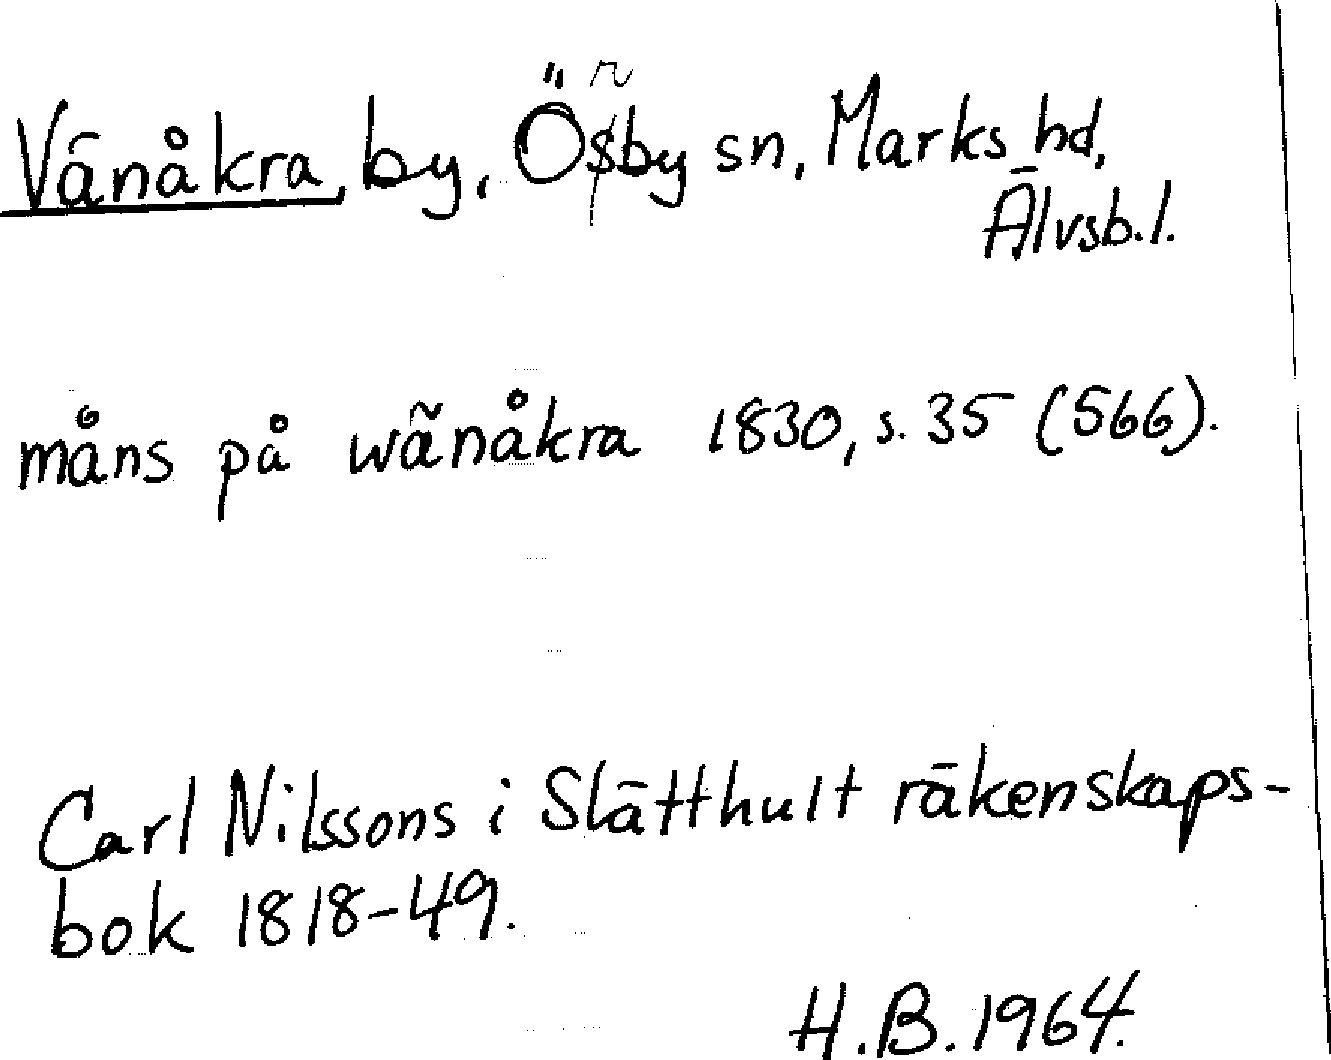 Vänåkra, by, Örby sn, Marks hd,
Älvsb.l.
måns på wänåkra 1830, s. 35 (566).
Carl Nilssons i Slätthult räkenskaps-
bok 1818-49.
H.B. 1964.